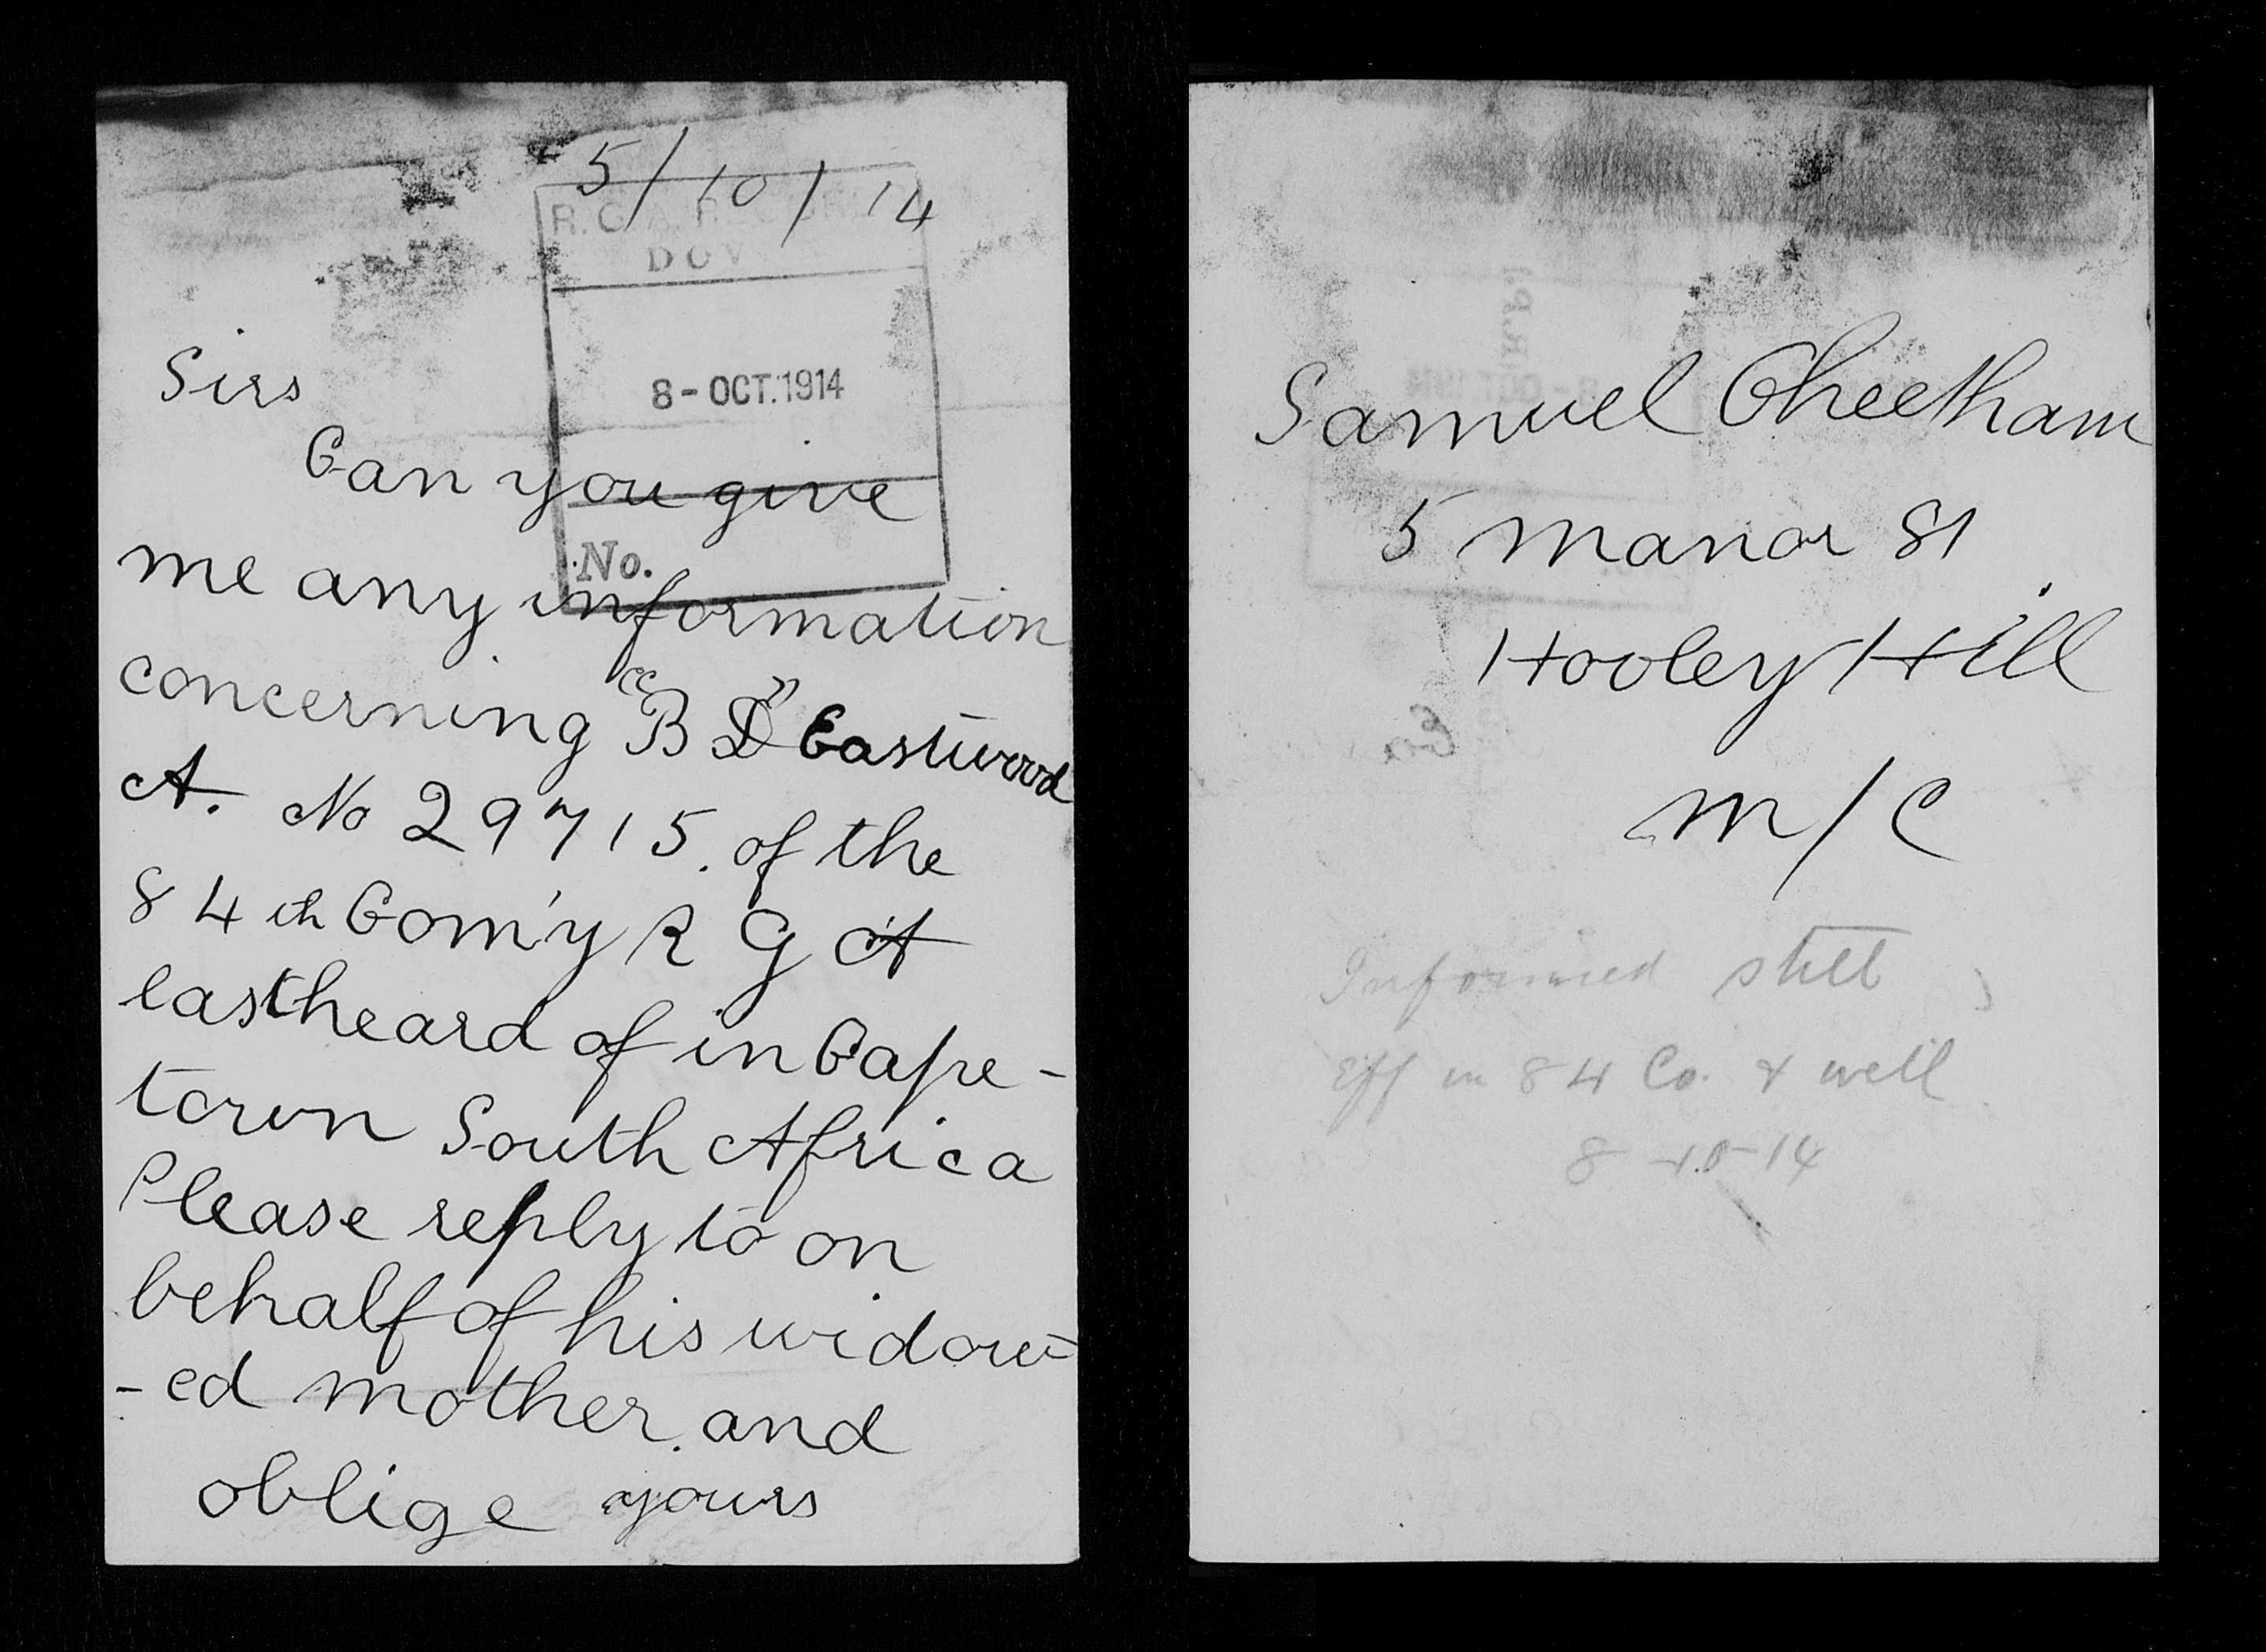 5/10/14
R.G.A. REC
DOV
8-OCT.1914
No.
Sirs
Can you give
me any information
concerning "B D" Eastwood
A. No 29715. of the
84th Com'y R G A
last heard of in Cape-
town South Africa
Please reply to on
behalf of his widow=
-ed mother. and
oblige yours
Samuel Cheetham
5 Manor St
Hooley Hill
M/C
Informed still
Eff in 84 Co. & well
8-10-14